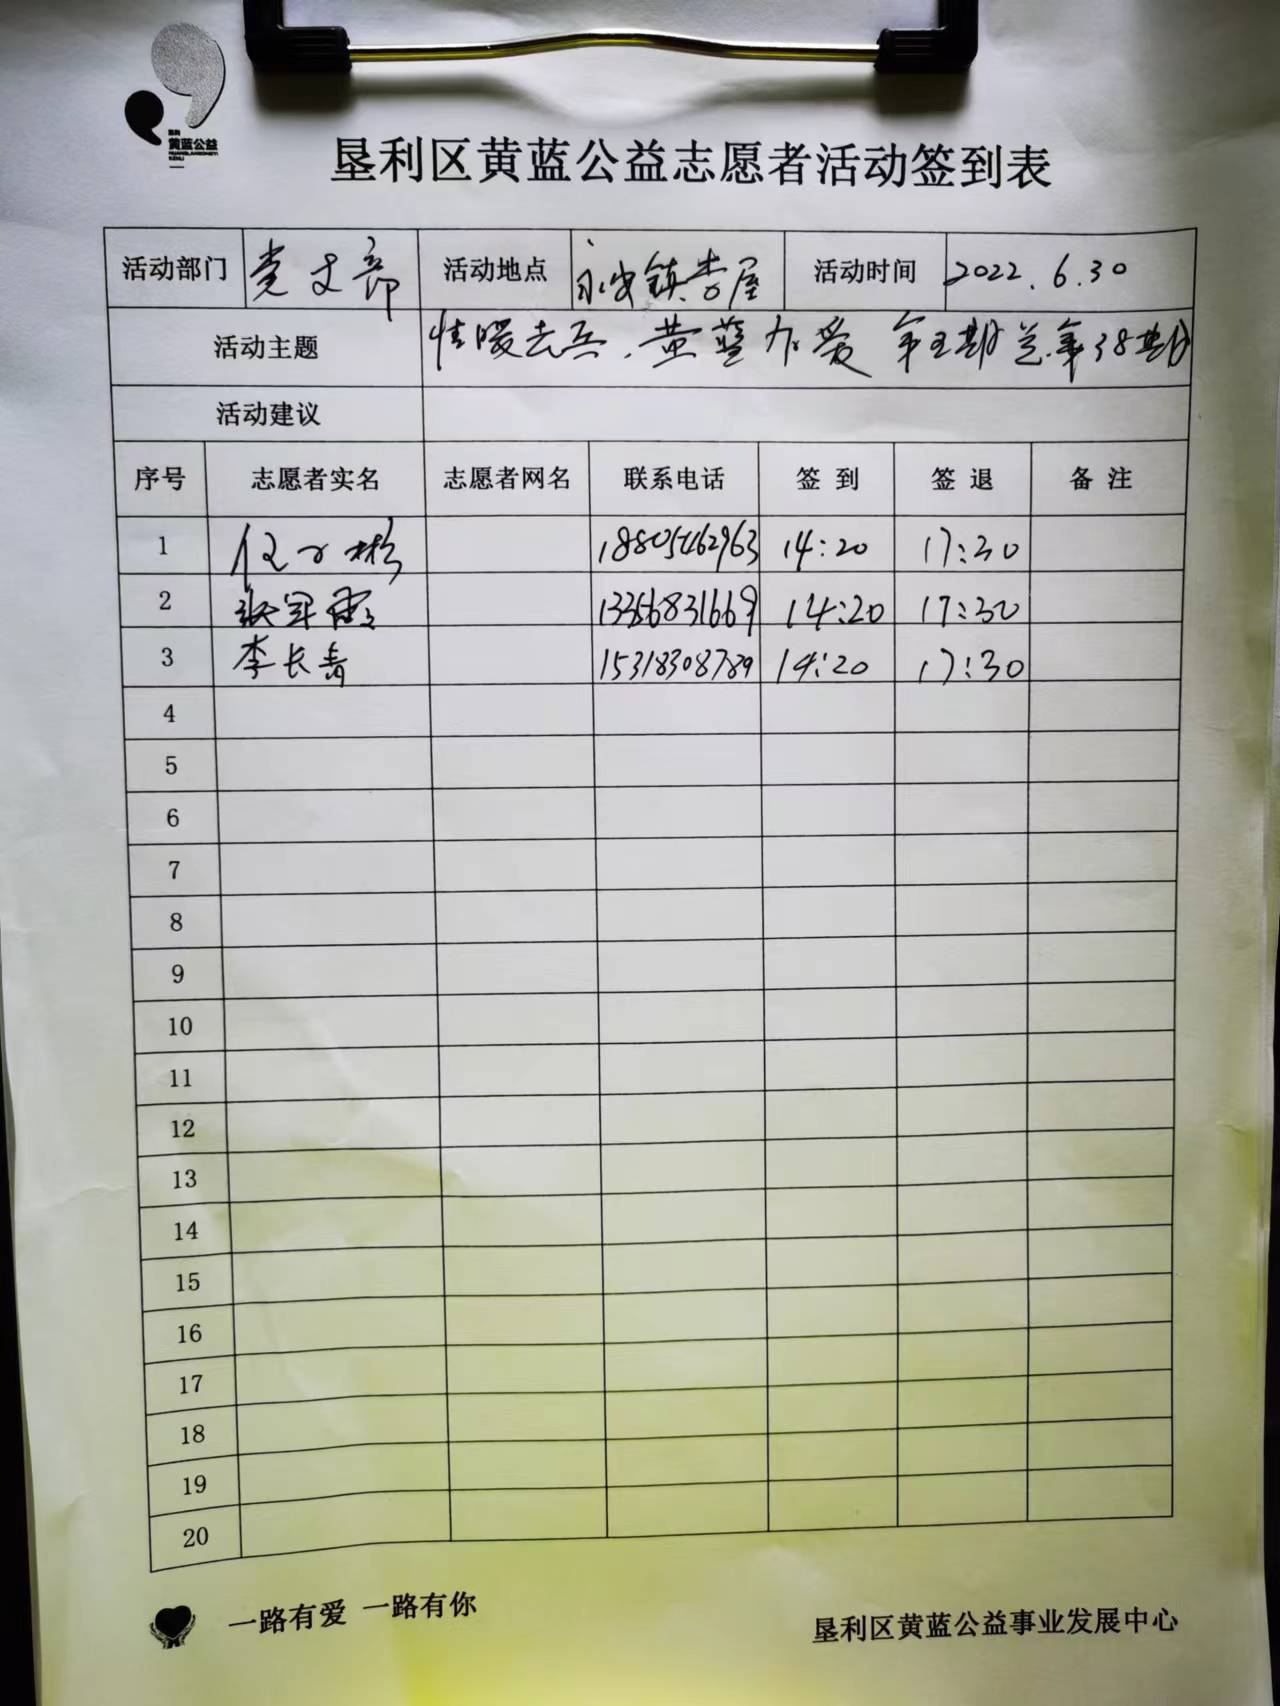 垦利
黄蓝公益
HUANGLANGONGYI
KENLI
垦利区黄蓝公益志愿者活动签到表
活动部门 党支部 活动地点 永安镇 屋 活动时间 2022.6.30
活动主题 情暖老兵、黄蓝有爱 第五期 总第38期
活动建议
序号 志愿者实名 志愿者网名 联系电话 签 到 签 退 备 注
1 18805462963 14:20 17:30
2 张军霞 13356831669 14:20 17:30
3 李长青 15318308789 14:20 17:30
4
5
6
7
8
9
10
11
12
13
14
15
16
17
18
19
20
一路有爱 一路有你
垦利区黄蓝公益事业发展中心